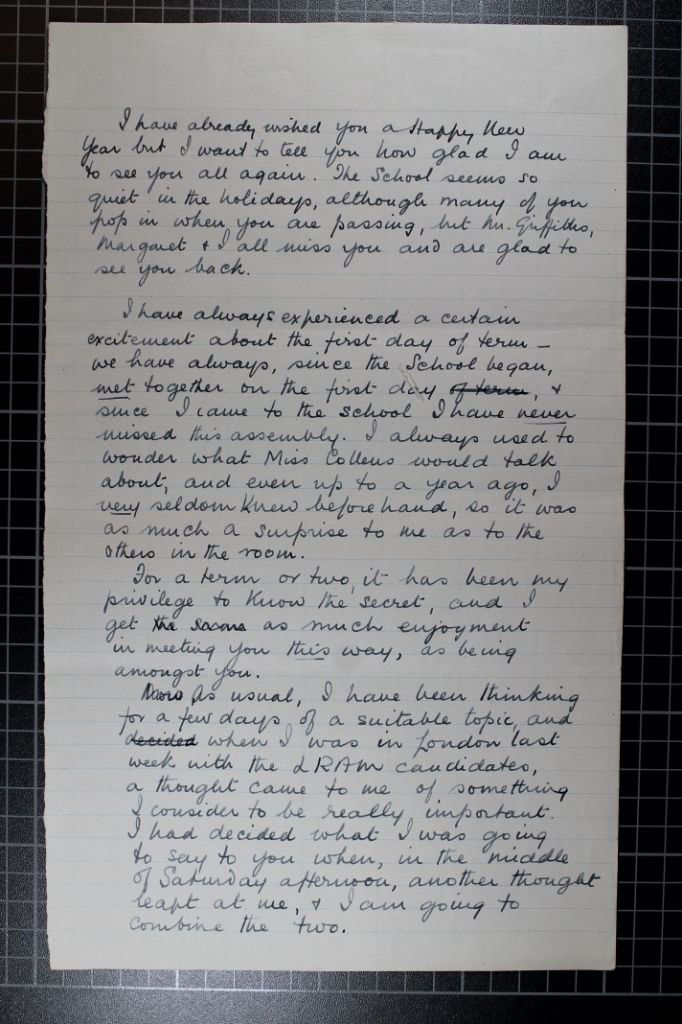 I have already wished you a Happy New
Year but I want to tell you how glad I am
to see you all again. The School seems so
quiet in the holidays, although many of you
pop in when you are passing, but Mr. Griffiths,
Margaret & I all miss you and are glad to
see you back.
I have always experienced a certain
excitement about the first day of term –
we have always, since the School began,
met together on the first day of term, &
since I came to the school I have never
missed this assembly. I always used to
wonder what Miss Collens would talk
about, and even up to a year ago, I
very seldom knew beforehand, so it was
as much a surprise to me as to the
others in the room.
For a term or two, it has been my
privilege to know the secret, and I
get the same as much enjoyment
in meeting you this way, as being
amongst you.
Now As usual, I have been thinking
for a few days of a suitable topic, and
decided when I was in London last
week with the LRAM candidates,
a thought came to me of something
I consider to be really important.
I had decided what I was going
to say to you when, in the middle
of Saturday afternoon, another thought
leapt at me, & I am going to
combine the two.